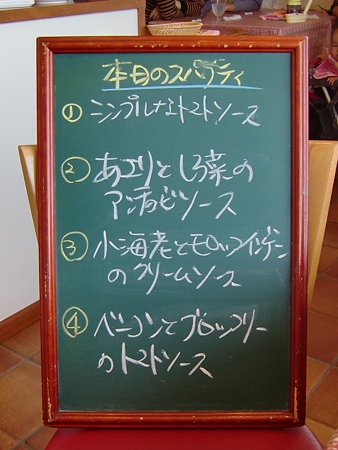 本日のスパゲティ
① シンプルなトマトソース
② あさりとしろ菜の
アンチョビソース
③ 小海老とモロッコインゲン
のクリームソース
④ ベーコンとブロッコリー
のトマトソース